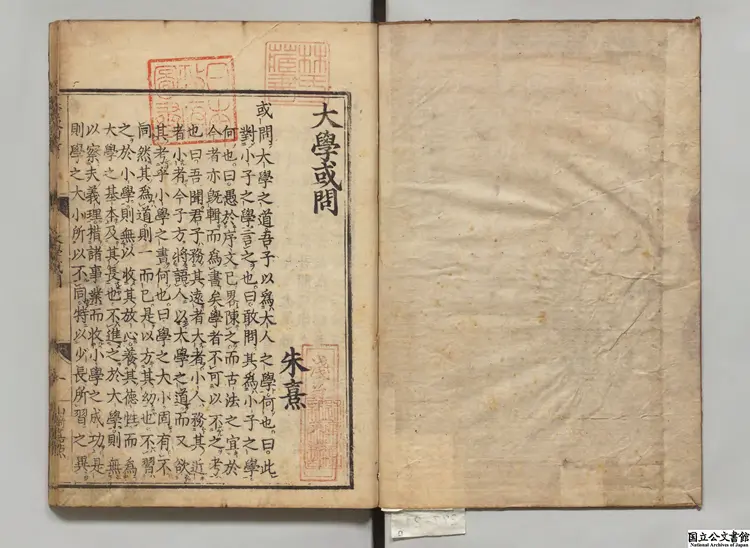 大學或問
朱熹
或問大學之道吾子以爲大人之學何也曰此
對小子之學言之也曰敢問其爲小子之學
何也曰愚於序文已畧陳之而古法之宜於
今者亦旣輯而爲書矣學者不可以不之考
也曰吾聞君子務其遠者大者小人務其近
者小者今子方將語人以大學之道而又欲
其考乎小學之書何也曰學之大小固有不
同然其爲道則一而已是以方其幼也不習
之於小學則無以收其放心養其德性而爲
大學之基本及其長也不進之於大學則無
以察夫義理措諸事業而收小學之成功是
則學之大小所以不同特以少長所習之異
国立公文書館
National Archives of Japan